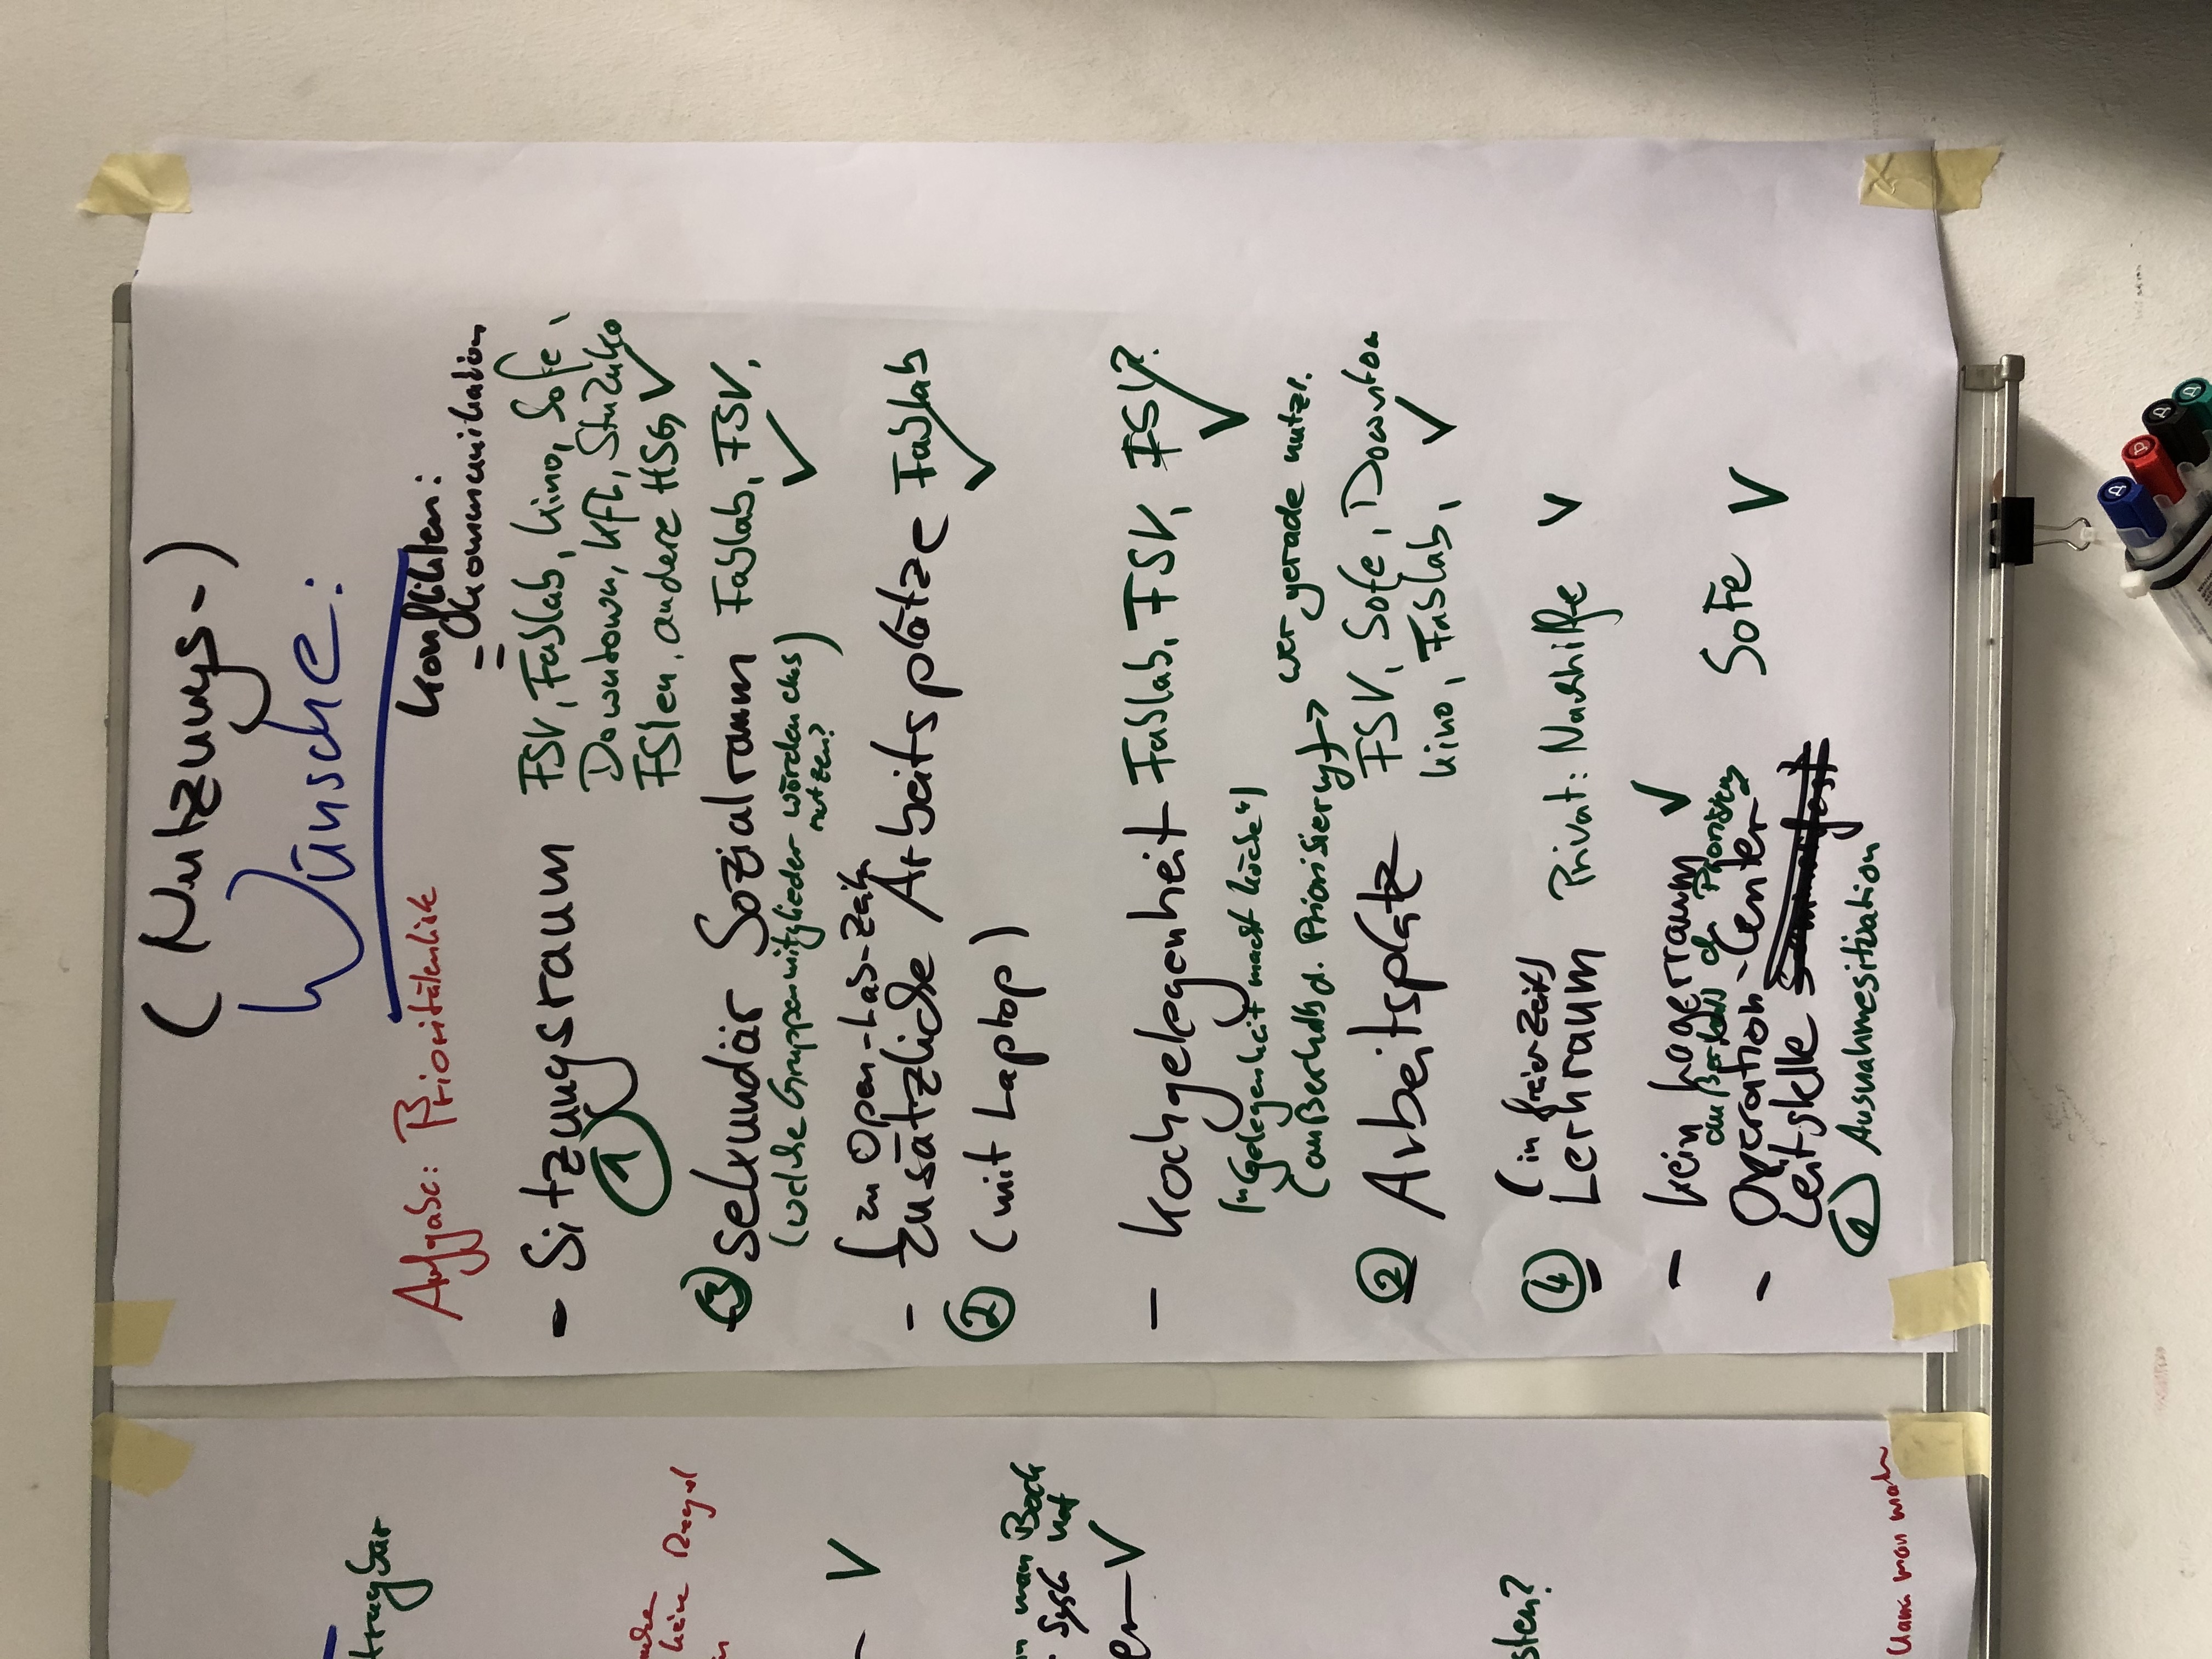 (Nutzungs-)
Wünsche:
Aufgabe: Prioritätenliste
Konflikten:
= Kommunikation
- Sitzungsraum FSV, Fablab, Kino, Sofe,
Downtown, KfL, StuZuKo
FSlen, andere HSG ✓
①
③ sekundär Sozialraum Fablab, FSV, ✓
(welche Gruppenmitglieder würden das nutzen?)
(zu Open-Lab-Zeiten
- zusätzliche Arbeitsplätze Fablab ✓
② (mit Laptop)
- Kochgelegenheit Fablab, FSV, FSV? ✓
("Gelegenheit macht Köche")
(außerhalb d. Priorisierung) → wer gerade nutzt.
② Arbeitsplatz FSV, Sofe, Downton
Kino, Fablab, ✓
(in freier Zeit)
④ Lernraum Privat: Nachhilfe ✓
- kein Lagerraum ✓
außerhalb d.
- Operation-Center Sofe ✓
Leitstelle
Ausnahmesituation
tragbar
keine Regel
✓
man Bock
hat
✓
kann man